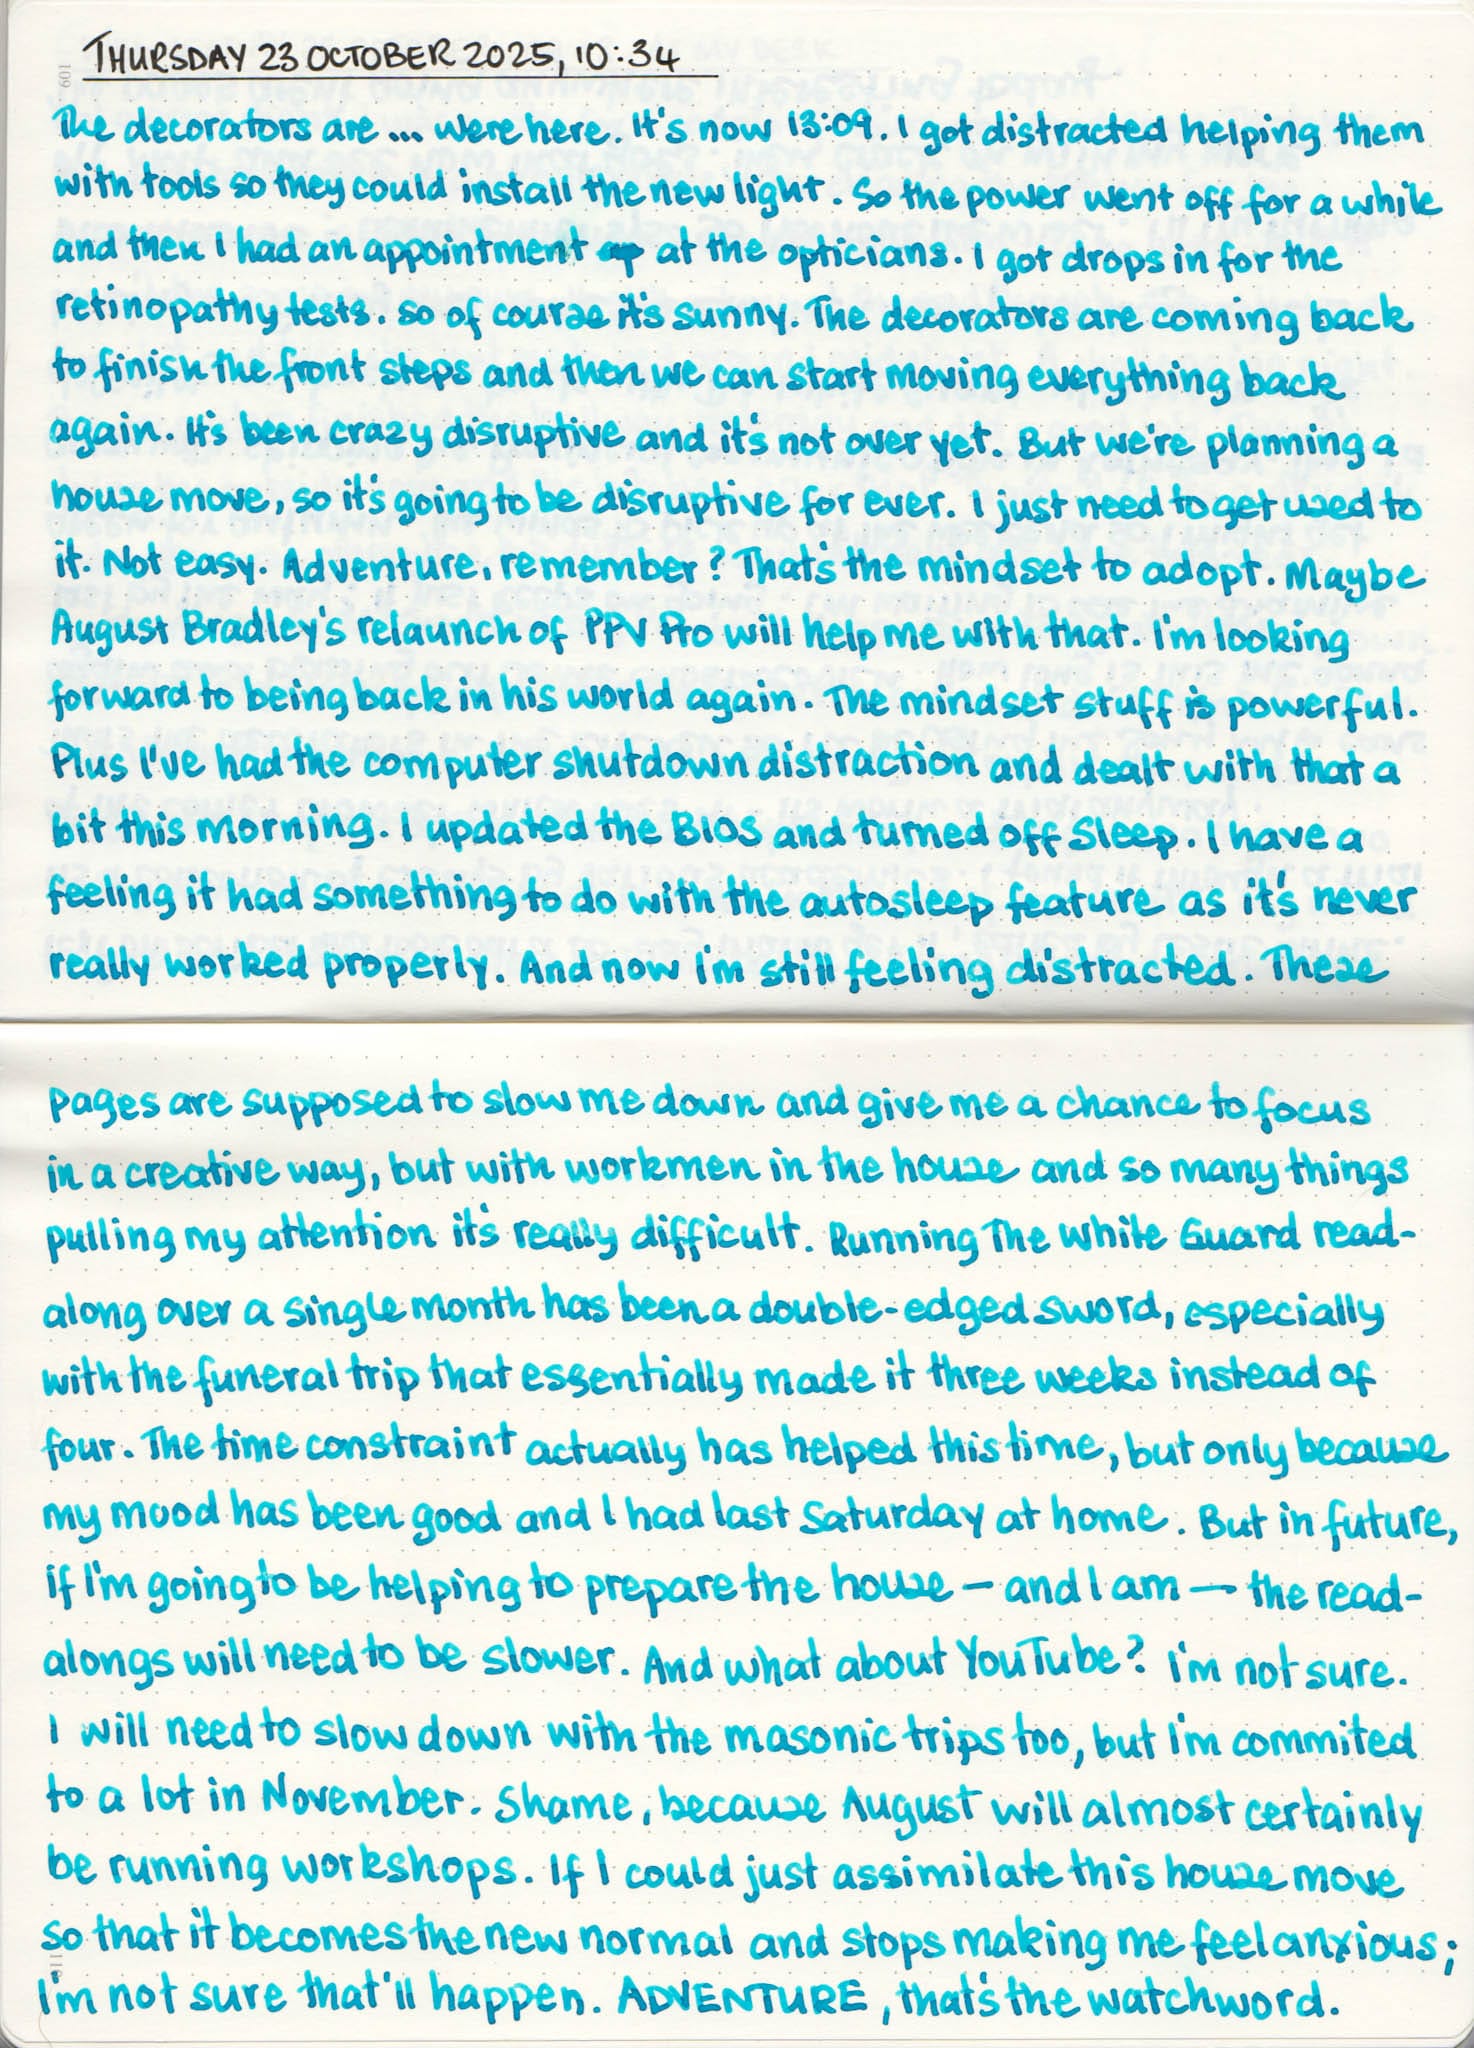 THURSDAY 23 OCTOBER 2025, 10:34
The decorators are ... were here. It's now 13:09. I got distracted helping them
with tools so they could install the new light. So the power went off for a while
and then I had an appointment ap at the opticians. I got drops in for the
retinopathy tests. So of course it's sunny. The decorators are coming back
to finish the front steps and then we can start moving everything back
again. It's been crazy disruptive and it's not over yet. But we're planning a
house move, so it's going to be disruptive for ever. I just need to get used to
it. Not easy. Adventure, remember? That's the mindset to adopt. Maybe
August Bradley's relaunch of PPV Pro will help me with that. I'm looking
forward to being back in his world again. The mindset stuff is powerful.
Plus I've had the computer shutdown distraction and dealt with that a
bit this morning. I updated the BIOS and turned off Sleep. I have a
feeling it had something to do with the autosleep feature as it's never
really worked properly. And now I'm still feeling distracted. These
pages are supposed to slow me down and give me a chance to focus
in a creative way, but with workmen in the house and so many things
pulling my attention it's really difficult. Running The White Guard read-
along over a single month has been a double-edged sword, especially
with the funeral trip that essentially made it three weeks instead of
four. The time constraint actually has helped this time, but only because
my mood has been good and I had last Saturday at home. But in future,
if I'm going to be helping to prepare the house – and I am – the read-
alongs will need to be slower. And what about YouTube? I'm not sure.
I will need to slow down with the masonic trips too, but I'm commited
to a lot in November. Shame, because August will almost certainly
be running workshops. If I could just assimilate this house move
so that it becomes the new normal and stops making me feel anxious;
I'm not sure that'll happen. ADVENTURE, that's the watchword.